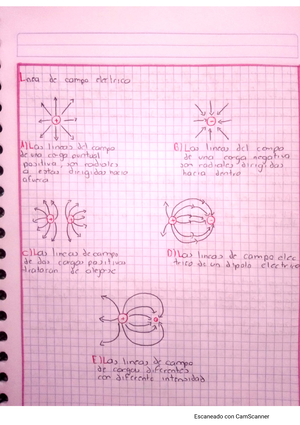 Linea de campo electrico
A) Las lineas del campo
de una carga puntual
positiva son radiales
a estas dirigidas hacia
afuera
B) Las lineas del campo
de una carga negativa
son radiales dirigidas
hacia dentro
C) Las lineas de campo
de dos cargas positivas
trataran de alejarse
D) Las lineas de campo elec
trico de un dipolo electrico
E) Las lineas de campo
de cargas diferentes
con diferente intensidad
Escaneado con CamScanner